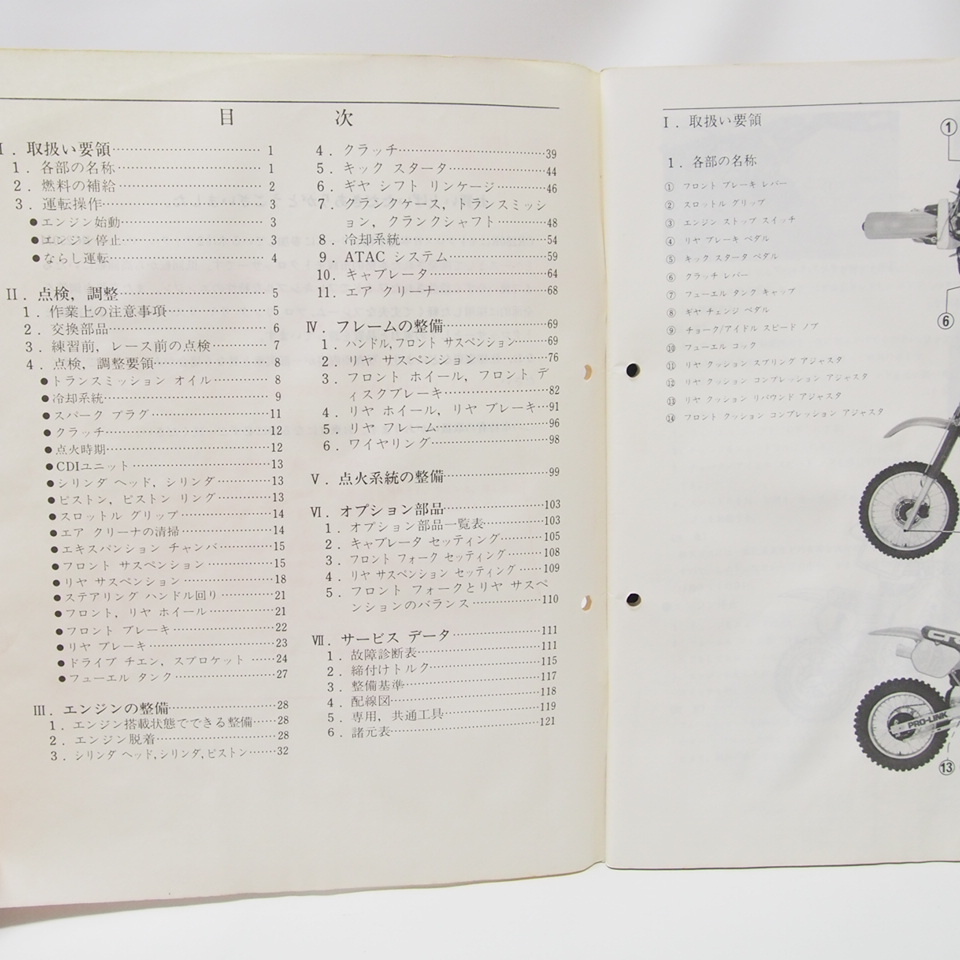 目 次
I. 取扱い要領 1
1. 各部の名称 1
2. 燃料の補給 2
3. 運転操作 3
●エンジン始動 3
●エンジン停止 3
●ならし運転 4
II. 点検，調整 5
1. 作業上の注意事項 5
2. 交換部品 6
3. 練習前，レース前の点検 7
4. 点検，調整要領 8
●トランスミッション オイル 8
●冷却系統 9
●スパーク プラグ 11
●クラッチ 12
●点火時期 12
●CDIユニット 13
●シリンダ ヘッド，シリンダ 13
●ピストン，ピストン リング 13
●スロットル グリップ 14
●エア クリーナの清掃 14
●エキスパンション チャンバ 15
●フロント サスペンション 15
●リヤ サスペンション 18
●ステアリング ハンドル回り 21
●フロント，リヤ ホイール 21
●フロント ブレーキ 22
●リヤ ブレーキ 23
●ドライブ チエン，スプロケット 24
●フューエル タンク 27
III. エンジンの整備 28
1. エンジン搭載状態でできる整備 28
2. エンジン脱着 28
3. シリンダ ヘッド,シリンダ,ピストン 32
4. クラッチ 39
5. キック スタータ 44
6. ギヤ シフト リンケージ 46
7. クランクケース，トランスミッシ
ョン，クランクシャフト 48
8. 冷却系統 54
9. ATAC システム 59
10. キャブレータ 64
11. エア クリーナ 68
IV. フレームの整備 69
1. ハンドル,フロント サスペンション 69
2. リヤ サスペンション 76
3. フロント ホイール，フロント デ
ィスクブレーキ 82
4. リヤ ホイール，リヤ ブレーキ 91
5. リヤ フレーム 96
6. ワイヤリング 98
V. 点火系統の整備 99
VI. オプション部品 103
1. オプション部品一覧表 103
2. キャブレータ セッティング 105
3. フロント フォーク セッティング 108
4. リヤ サスペンション セッティング 109
5. フロント フォークとリヤ サスペ
ンションのバランス 110
VII. サービス データ 111
1. 故障診断表 111
2. 締付けトルク 115
3. 整備基準 117
4. 配線図 118
5. 専用，共通工具 119
6. 諸元表 121
I. 取扱い要領
1. 各部の名称
① フロント ブレーキ レバー
② スロットル グリップ
③ エンジン ストップ スイッチ
④ リヤ ブレーキ ペダル
⑤ キック スタータ ペダル
⑥ クラッチ レバー
⑦ フューエル タンク キャップ
⑧ ギヤ チェンジ ペダル
⑨ チョーク/アイドル スピード ノブ
⑩ フューエル コック
⑪ リヤ クッション スプリング アジャスタ
⑫ リヤ クッション コンプレッション アジャスタ
⑬ リヤ クッション リバウンド アジャスタ
⑭ フロント クッション コンプレッション アジャスタ
①
⑥
PRO-LINK
⑬